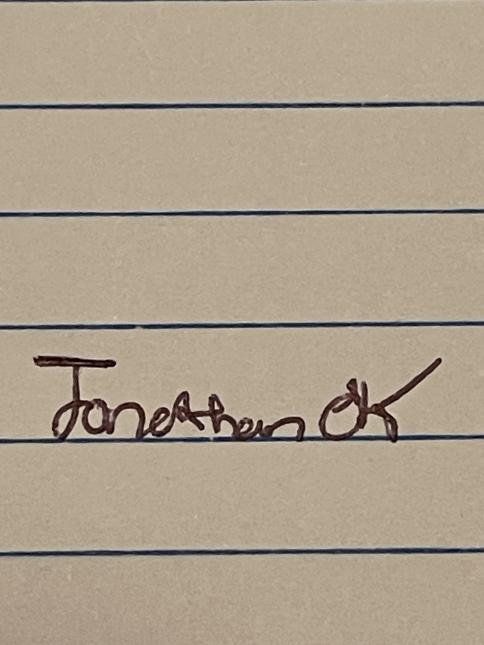 Jonathan OK